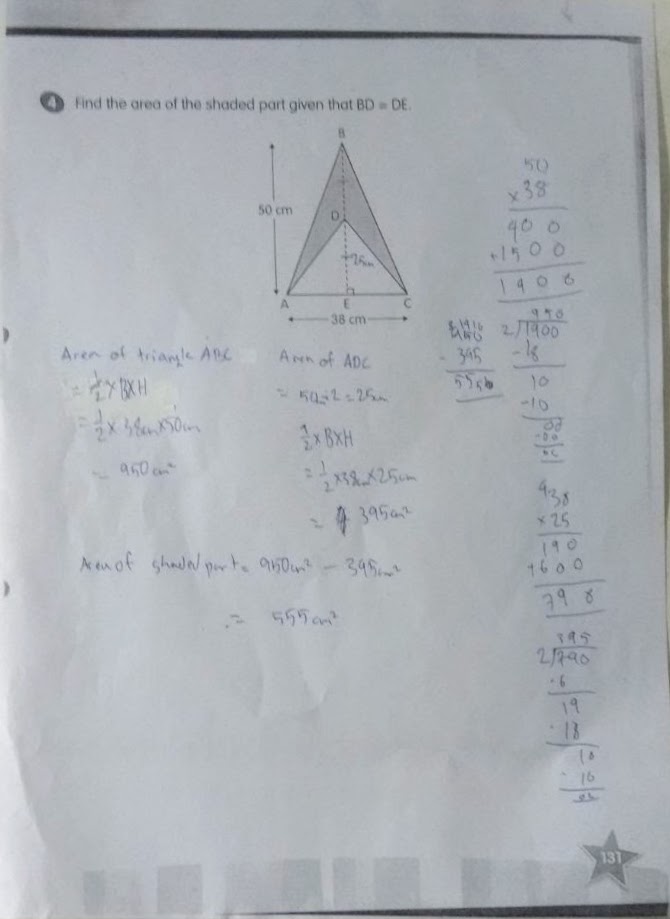 4 Find the area of the shaded part given that BD = DE.
B
50 cm
D
25cm
A E C
38 cm
Area of triangle ABC
= 1/2 × B×H
= 1/2 × 38cm×50cm
= 950cm²
Area of ADC
= 50÷2 = 25cm
1/2 × B×H
= 1/2 ×38cm×25cm
= 395cm²
Area of shaded part = 950cm² - 395cm²
= 555cm²
50
×38
400
+1500
1900
- 395
555
950
2/1900
-18
10
-10
00
-00
00
38
×25
190
+600
790
395
2/790
-6
19
-18
10
-10
00
131